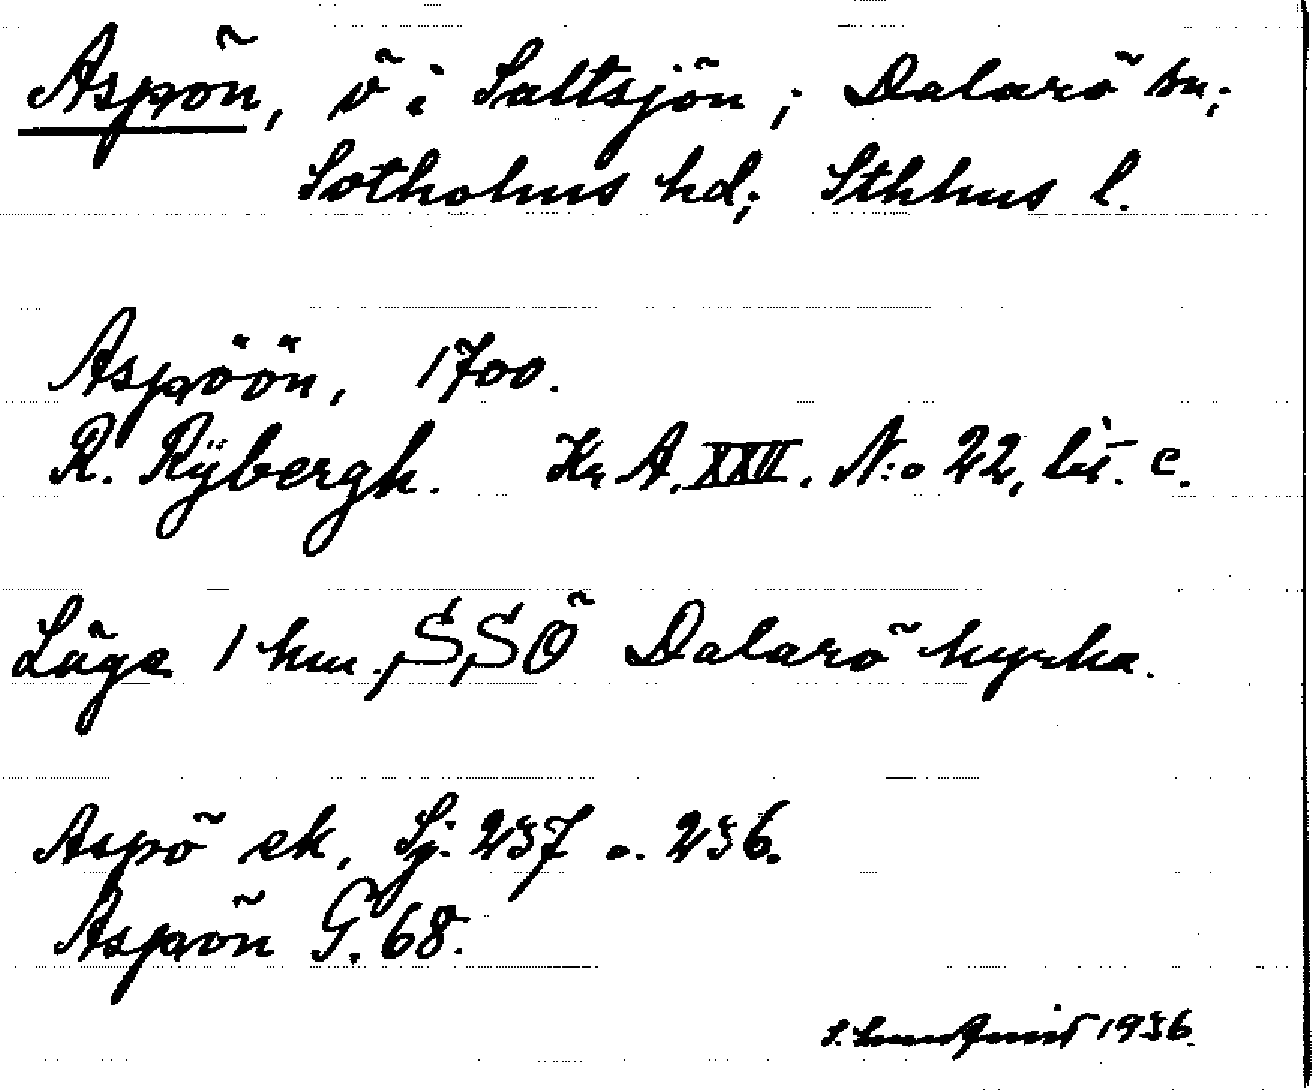 Aspön, ö i Saltsjön; Dalarö sn;
Sotholms hd; Sthlms l.
Aspöön, 1700.
R. Rÿbergh. Kr A. XXII. N:o 22, lit. c.
Läge 1 km. SSÖ Dalarö kyrka.
Aspö ek, Sj. 237 o. 236.
Aspön G. 68.
S. Lundqvist 1936